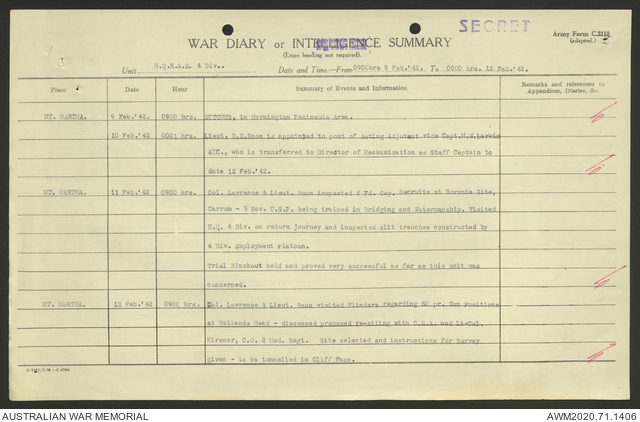 SECRET
Army Form C.2118
(adapted.)
WAR DIARY or INTELLIGENCE SUMMARY
(Erase heading not required).
Unit H.Q.R.A.E. 4 Div. Date and Time—From 0900hrs 9 Feb.'42. To 0900 hrs. 12 Feb.'42.
Place Date Hour Summary of Events and Information Remarks and references to
Appendices, Diaries, &c.
MT. MARTHA. 9 Feb.'42. 0900 hrs. DITCHES, in Mornington Peninsula Area.
10 Feb.'42 0001 hrs. Lieut. R.R.Boon is appointed to post of Acting Adjutant vice Capt.H.V.Larkin
who is transferred to Director of Mechanization as Staff Captain to
date 12 Feb.'42.
MT. MARTHA. 11 Feb.'42 0900 hrs. Col. Lawrance & Lieut. Boon inspected 6 Fd. Coy. Recruits at Boronia Site,
Carrum - 5 Nov. U.S.P. being trained in Bridging and Watermanship. Visited
H.Q. 4 Div. on return journey and inspected slit trenches constructed by
4 Div. Employment Platoon.
Trial Blackout held and proved very successful as far as this unit was
concerned.
MT. MARTHA. 12 Feb.'42 0900 hrs. Col. Lawrance & Lieut. Boon visited Flinders regarding 60 pr. Gun Positions
at Hollands Head - discussed proposed re-siting with C.R.A. and Lt-Col.
C.O. 2 Med. Regt. Site selected and instructions for Survey
given - to be tunnelled in Cliff Face.
AUSTRALIAN WAR MEMORIAL AWM2020.71.1406